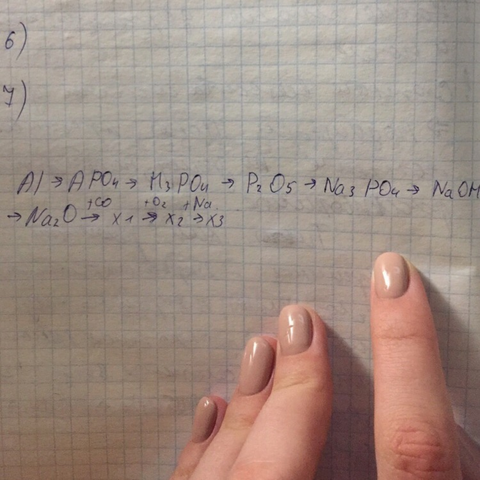 6)
7)
Al → APO4 → H3PO4 → P2O5 → Na3PO4 → NaOH
→ Na2O +CO → x1 +O2 → x2 +Na → x3